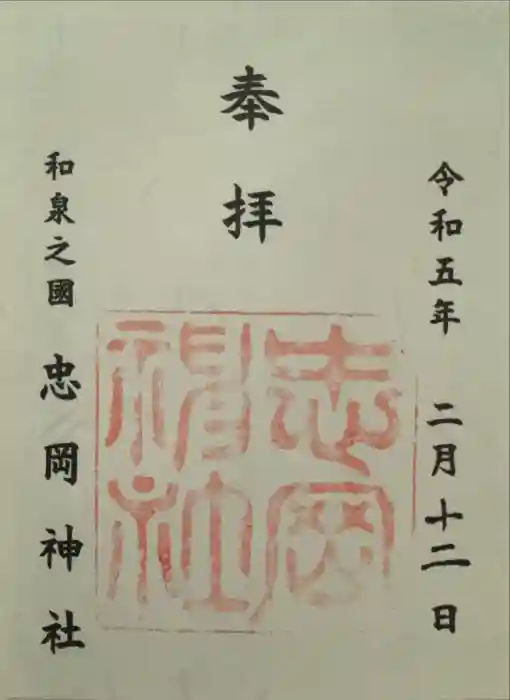 奉拝
令和五年 二月十二日
和泉之國 忠岡神社
忠岡
神社